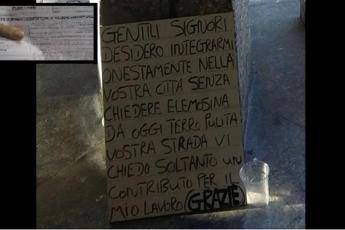 GENTILI SIGNORI
DESIDERO INTEGRARMI
ONESTAMENTE NELLA
VOSTRA CITTÀ SENZA
CHIEDERE ELEMOSINA
DA OGGI TERRÒ PULITA
VOSTRA STRADA VI
CHIEDO SOLTANTO UN
CONTRIBUTO PER IL
MIO LAVORO (GRAZIE)